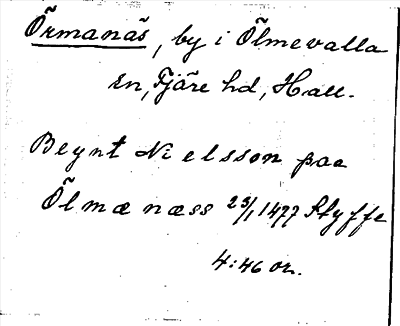 Örmanäs, by i Ölmevalla
sn, Fjäre hd, Hall.
Beynt Nielsson paa
Ölmænæss 25/1 1477 Styffe
4:46 or.